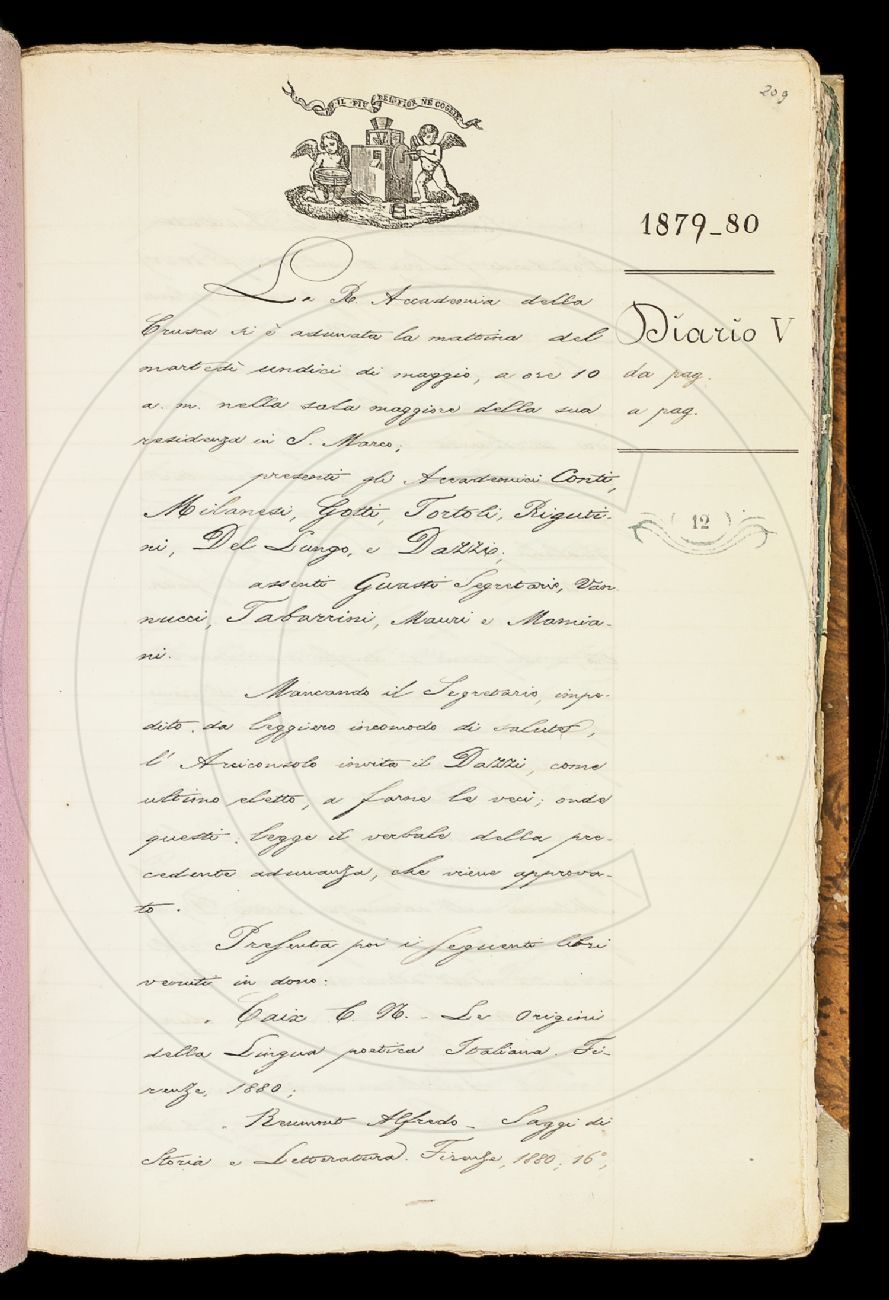 209
IL PIÙ BEL FIOR NE COGLIE
1879-80
La R. Accademia della
Crusca si è adunata la mattina del
martedì undici di maggio, a ore 10
a. m. nella sala maggiore della sua
residenza in S. Marco;
presenti gli Accademici Conti,
Milanesi, Gotti, Tortoli, Riguti-
ni, Del Lungo, e Dazzi;
assenti Guasti Segretario, Van-
nucci, Tabarrini, Mauri e Mamia-
ni.
Mancando il Segretario, impe-
dito da leggiero incomodo di salute,
l'Arciconsolo invita il Dazzi, come
ultimo eletto, a farne le veci; onde
questi legge il verbale della pre-
cedente adunanza, che viene approva-
to.
Presenta poi i seguenti libri
venuti in dono:
Caix C. N. - Le Origini
della Lingua poetica Italiana. Fi-
renze, 1880;
Reumont Alfredo - Saggi di
Storia e Letteratura. Firenze, 1880, 16°,
Diario V
da pag.
a pag.
12